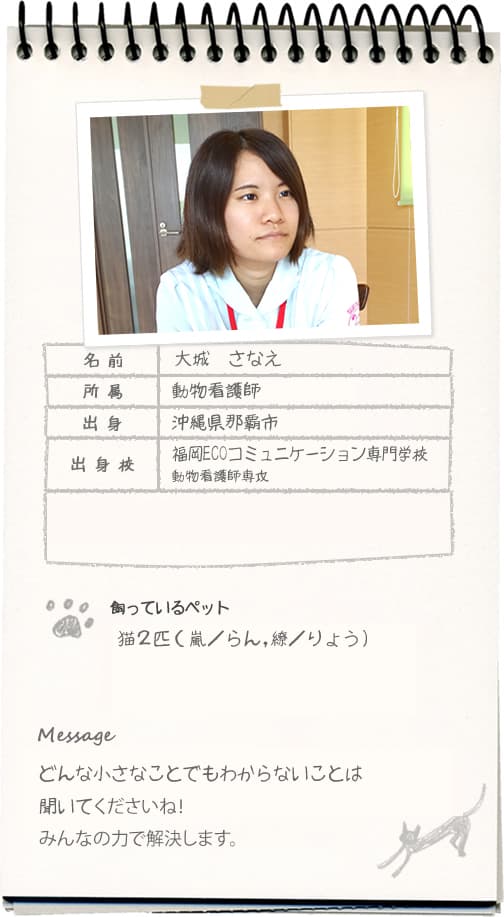 名前 大城 さなえ
所属 動物看護師
出身 沖縄県那覇市
出身校 福岡ECOコミュニケーション専門学校
動物看護師専攻
飼っているペット
猫2匹(嵐/らん,繚/りょう)
Message
どんな小さなことでもわからないことは
聞いてくださいね!
みんなの力で解決します。